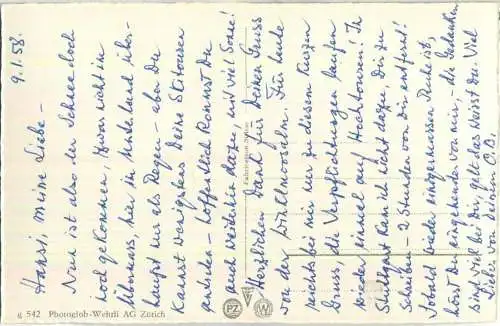 9.1.58.
Hansi, meine Liebe –
Nun ist also der Schnee doch
noch gekommen, zwar nicht im
hier im Unterland über-
haupt nur als Regen – aber Du
kannst wenigstens Deine Skitouren
– hoffentlich kannst Du
auch weiterhin dazu, mit viel Sonne!
Herzlichen Dank für Deinen Gruss
von der Für heute
reichts bei mir nur zu diesem kurzen
Gruss, die Verpflichtungen laufen
wieder einmal auf Hochtouren! In
Stuttgart kam ich nicht dazu, Dir zu
schreiben – 2 Stunden von Dir entfernt!
Sobald wieder einigermassen Ruhe ist,
hörst Du eingehender von mir, – die Gedanken
sind viel bei Dir, gell das weisst Du. Viel
Liebs von Deinem
g 542 Photoglob-Wehrli AG Zürich
PZ
W